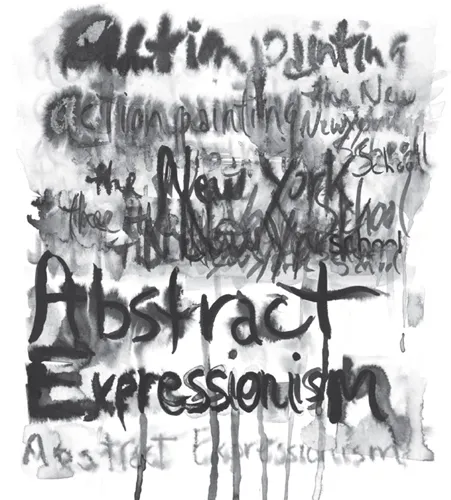 action painting
action painting
the New
New York
School
School
the New York
the School
New York School
York School
Abstract
Expressionism
Abstract Expressionism